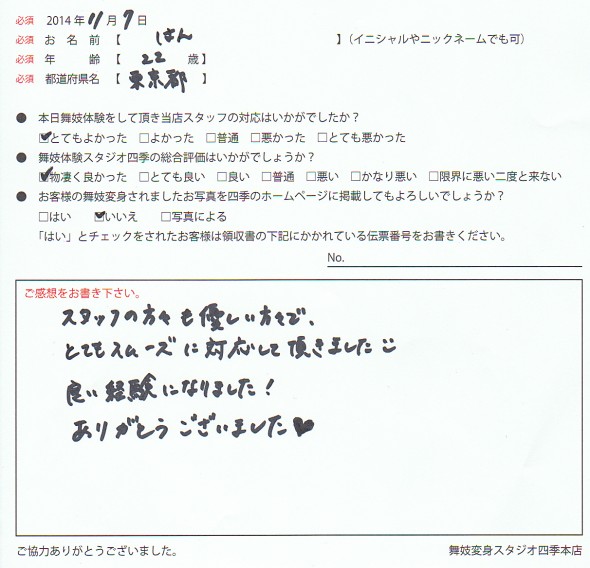 必須 2014年 11月 9日
必須 お 名 前【 はん 】(イニシャルやニックネームでも可)
必須 年 齢【 22 歳】
必須 都道府県名【 東京都 】
● 本日舞妓体験をして頂き当店スタッフの対応はいかがでしたか?
☑とてもよかった □よかった □普通 □悪かった □とても悪かった
● 舞妓体験スタジオ四季の総合評価はいかがでしょうか?
☑物凄く良かった □とても良い □良い □普通 □悪い □かなり悪い □限界に悪い二度と来ない
● お客様の舞妓変身されましたお写真を四季のホームページに掲載してもよろしいでしょうか?
□はい ☑いいえ □写真による
「はい」とチェックをされたお客様は領収書の下記にかかれている伝票番号をお書きください。
No.
ご感想をお書き下さい。
スタッフの方々も優しい方々で、
とてもスムーズに対応して頂きました
良い経験になりました!
ありがとうございました♥
ご協力ありがとうございました。 舞妓変身スタジオ四季本店